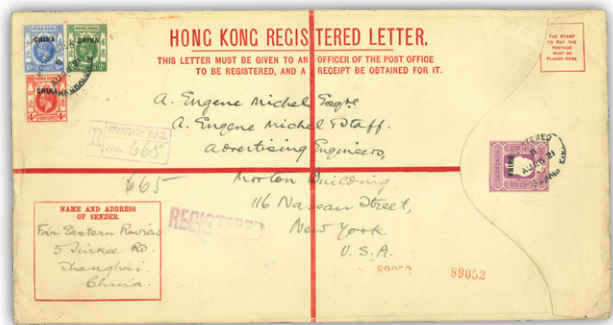 HONG KONG REGISTERED LETTER.
THIS LETTER MUST BE GIVEN TO AN OFFICER OF THE POST OFFICE
TO BE REGISTERED, AND A RECEIPT BE OBTAINED FOR IT.
THE STAMP
TO PAY THE
POSTAGE
MUST BE
PLACED HERE.
HONG KONG
HONG KONG
CHINA
CHINA
CHINA
A. Eugene Michel Esqre
A. Eugene Michel & Staff.
Advertising Engineers,
Morton Building
116 Nassau Street,
New York.
U.S.A.
R
SHANGHAI B.P.O.
No. 665
665
REGISTERED
NAME AND ADDRESS
OF SENDER.
Far Eastern Review
5 Jinkee Rd.
Shanghai
China.
REGISTERED
AU 21
CHINA
89052
89052